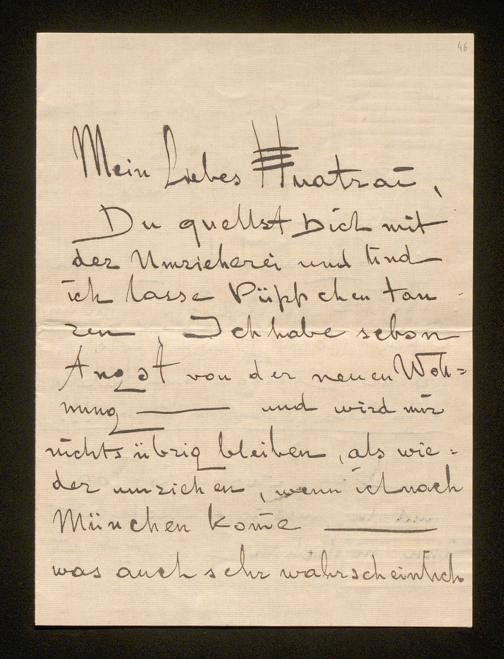 46
Mein Liebes Huatrai,
Du quellst Dich mit
der Umzieherei und und
ich lasse Püppchen tan-
zen Ich habe schon
Angst von der neuen Woh=
nung ——— und wird mir
nichts übrig bleiben, als wie=
der umziehen, wenn ich nach
München kom̄e ———
was auch sehr wahrscheinlich